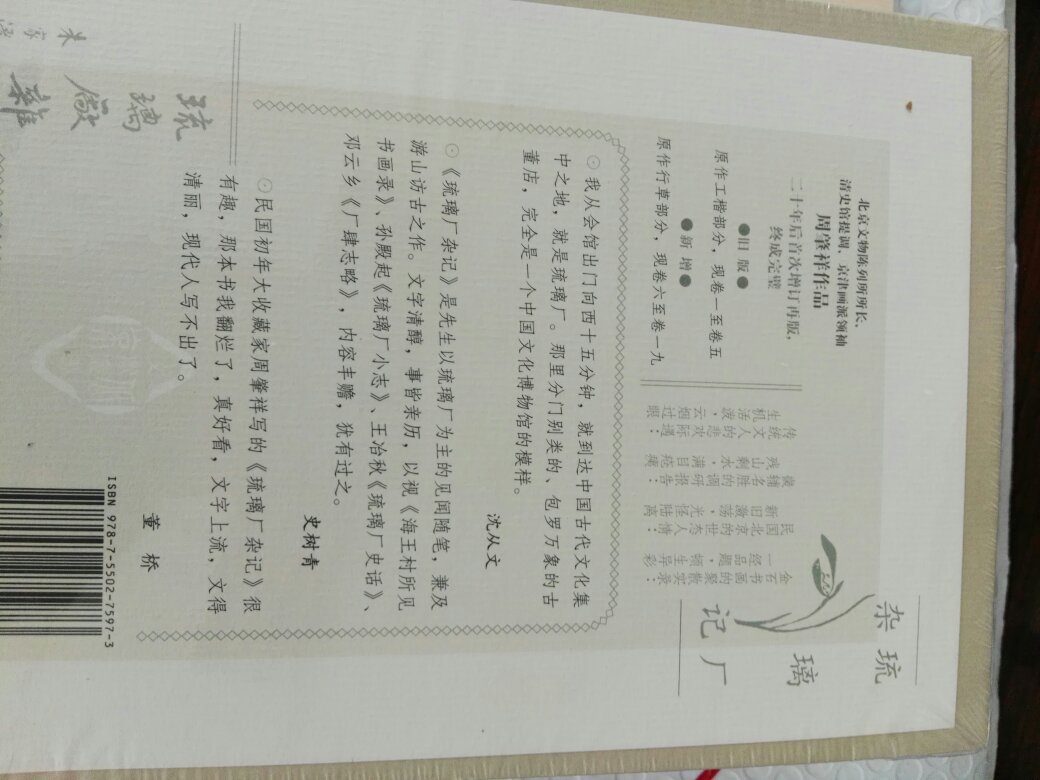 琉璃厂
杂记
金石书画的聚散实录：
一经品题，顿生异彩
民国北京的世态人情：
新旧激荡，光怪陆离
畿辅名胜的调研报告：
残山剩水，满目疮痍
传统文人的悲欢际遇：
生机活泼，云烟过眼
北京文物陈列所所长、
清史馆提调、京津画派领袖
周肇祥作品
二十年后首次增订再版，
终成完璧
●旧版●
原作工楷部分，现卷一至卷五
●新增●
原作行草部分，现卷六至卷一九
⊙我从会馆出门向西十五分钟，就到达中国古代文化集
中之地，就是琉璃厂。那里分门别类的、包罗万象的古
董店，完全是一个中国文化博物馆的模样。
沈从文
⊙《琉璃厂杂记》是先生以琉璃厂为主的见闻随笔，兼及
游山访古之作。文字清醇，事皆亲历，以视《海王村所见
书画录》、孙殿起《琉璃厂小志》、王冶秋《琉璃厂史话》、
邓云乡《厂肆志略》，内容丰赡，犹有过之。
史树青
⊙民国初年大收藏家周肇祥写的《琉璃厂杂记》很
有趣，那本书我翻烂了，真好看，文字上流，文得
清丽，现代人写不出了。
董桥
琉璃厰雜
朱家
ISBN 978-7-5502-7597-3